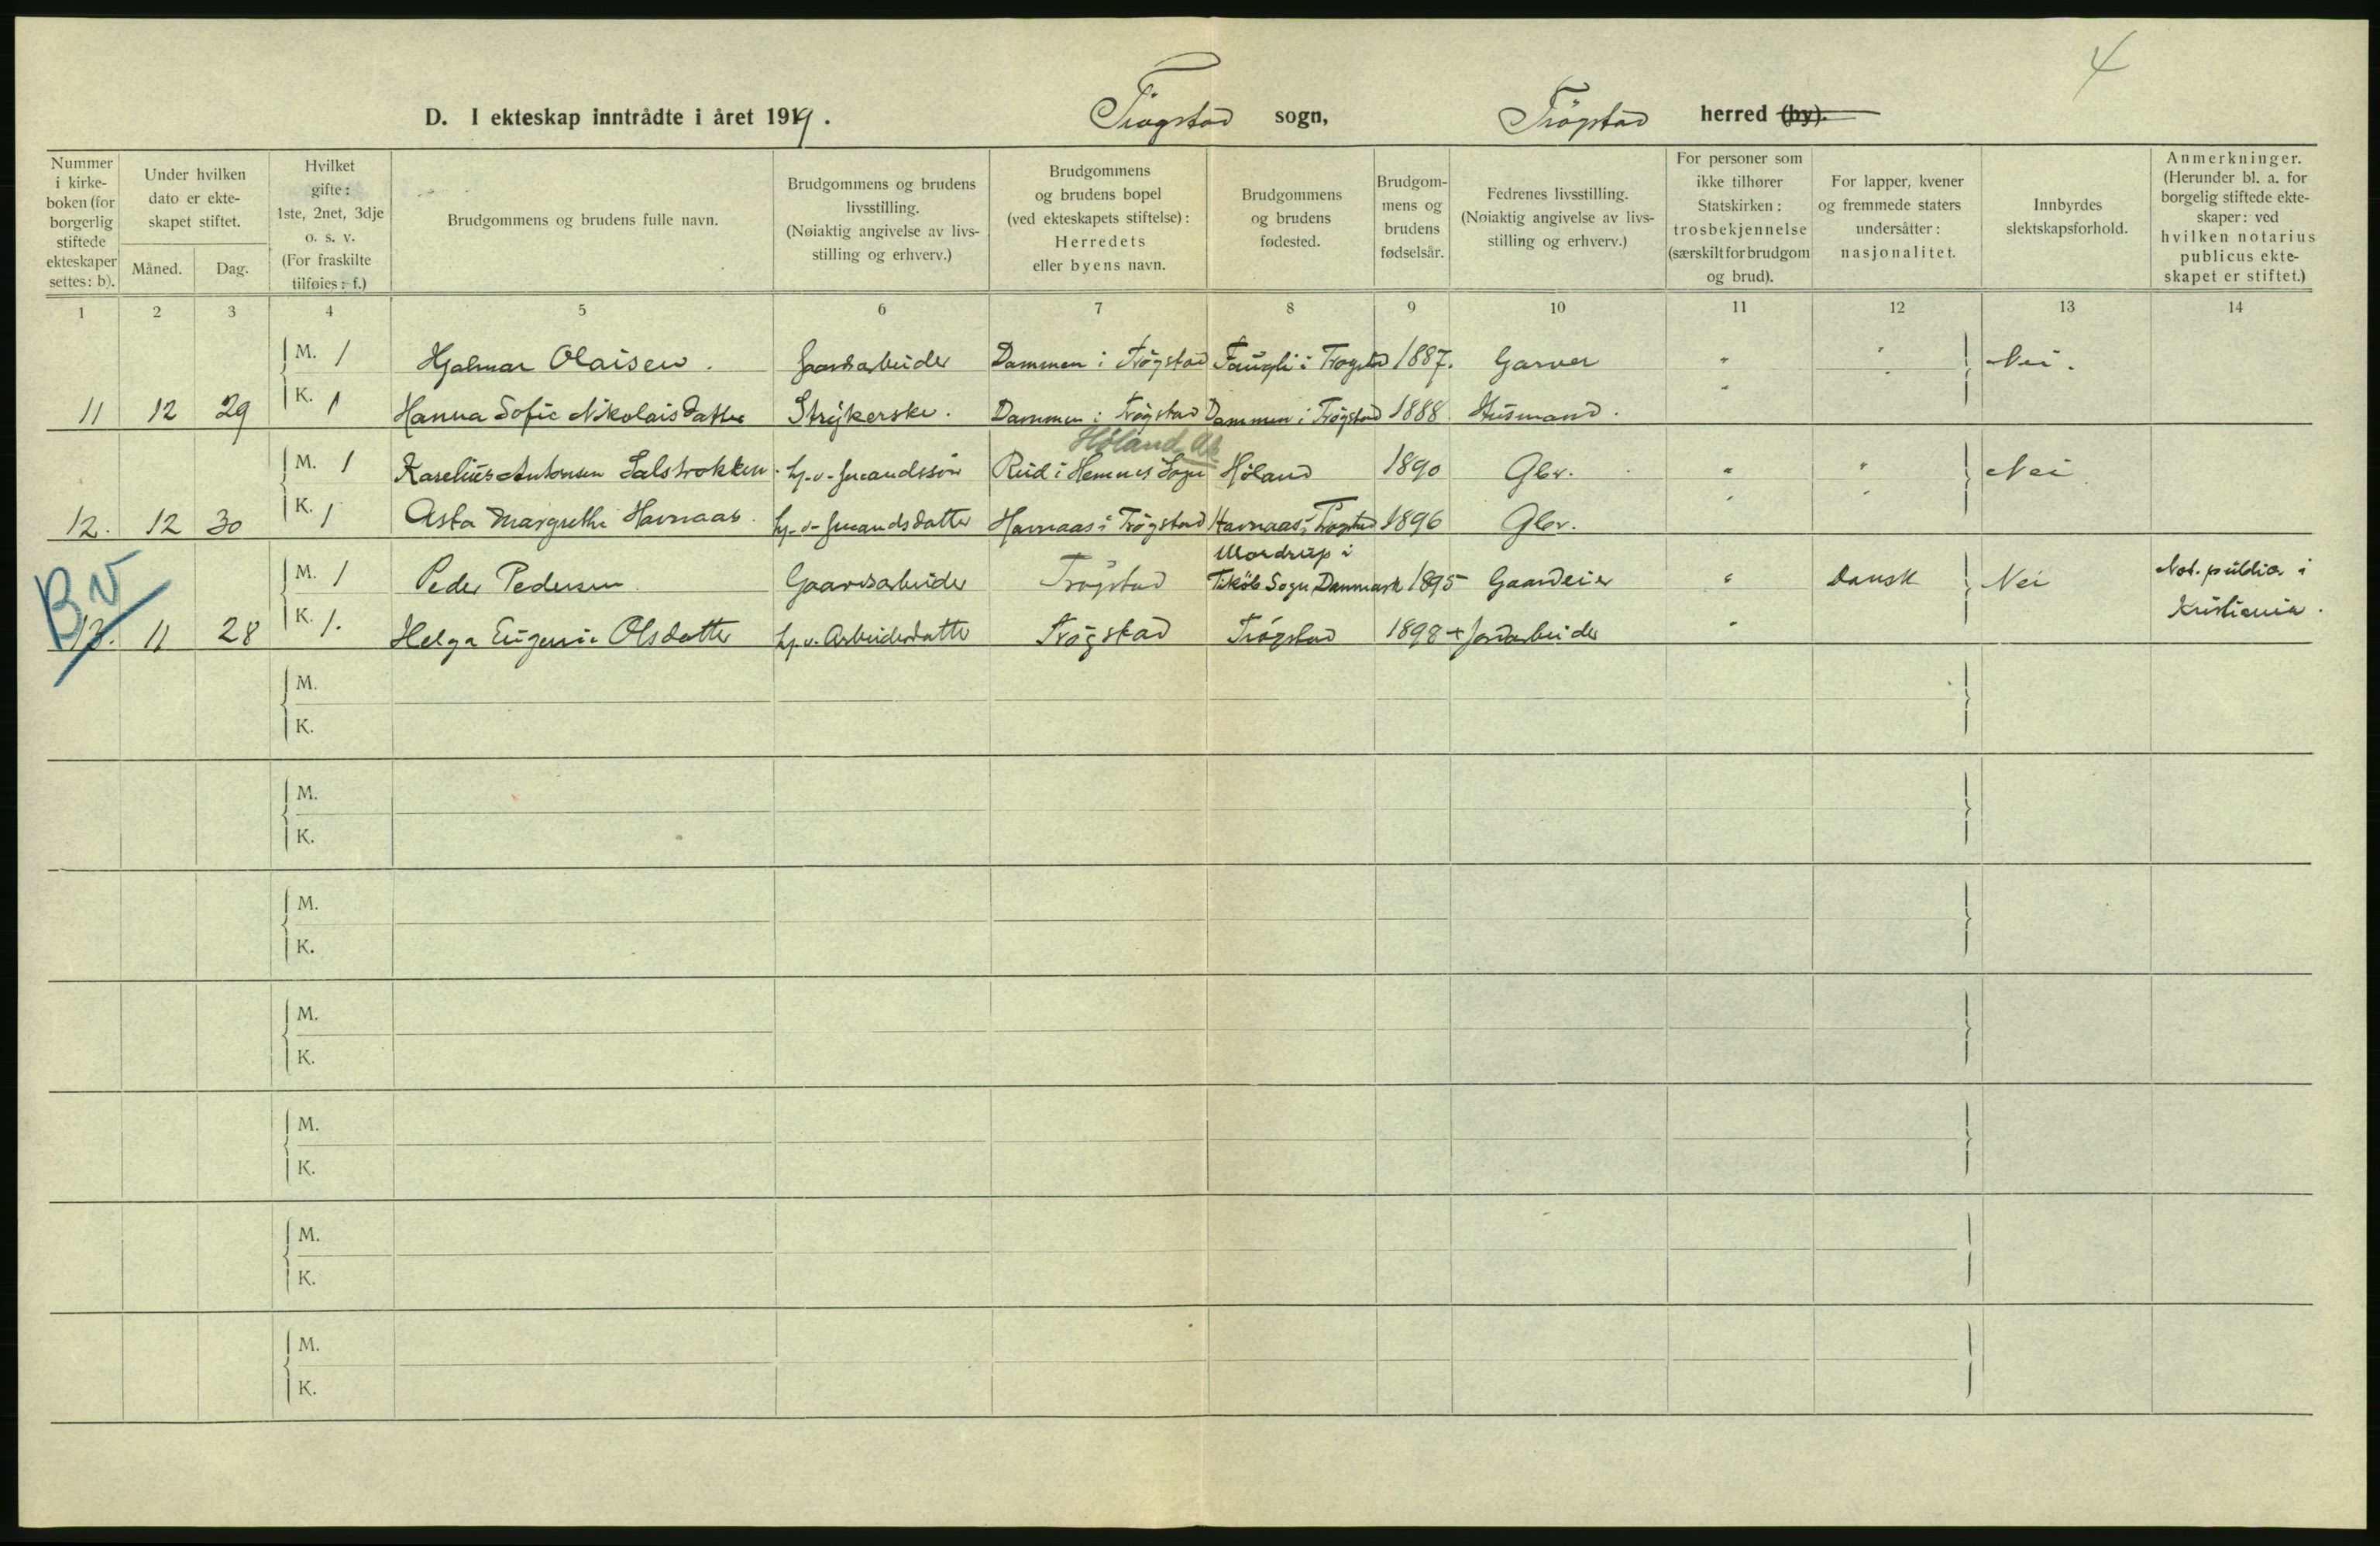 4
D. I ekteskap inntrådte i året 1919. Trøgstad sogn, Trøgstad herred (by).
Nummer i kirkeboken (for borgerlig stiftede ekteskaper settes: b).
Under hvilken dato er ekteskapet stiftet.
Måned. Dag.
Hvilket gifte: 1ste, 2net, 3dje o. s. v. (For fraskilte tilføies: f.)
Brudgommens og brudens fulle navn.
Brudgommens og brudens livsstilling. (Nøiaktig angivelse av livsstilling og erhverv.)
Brudgommens og brudens bopel (ved ekteskapets stiftelse): Herredets eller byens navn.
Brudgommens og brudens fødested.
Brudgommens og brudens fødselsår.
Fedrenes livsstilling. (Nøiaktig angivelse av livsstilling og erhverv.)
For personer som ikke tilhører Statskirken: trosbekjennelse (særskilt for brudgom og brud).
For lapper, kvener og fremmede staters undersåtter: nasjonalitet.
Innbyrdes slektskapsforhold.
Anmerkninger. (Herunder bl. a. for borgelig stiftede ekteskaper: ved hvilken notarius publicus ekteskapet er stiftet.)
1 2 3 4 5 6 7 8 9 10 11 12 13 14
M. 1 Hjalmar Olaisen. Gaardsarbeider Dammen i Trøgstad Faugli i Trøgstad 1887. Garver " " Nei.
11 12 29 K. 1 Hanna Sofie Nikolaisdatter Strykerske. Dammen i Trøgstad Dammen i Trøgstad 1888 Husmand. " "
Høland Ak
M. 1 Karelius Antonsen Salstrokken. hj. v. gmandssøn Rud i Hemnes Sogn Høland 1890 Gbr. " " Nei
12. 12 30 K. 1 Asta Margrethe Havnaas. hj. v. gmandsdatter Havnaas i Trøgstad Havnaas i Trøgstad 1896 Gbr. " "
Bv
Mordrup i
M. 1 Peder Pedersen. Gaardsarbeider Trøgstad Tikøb Sogn Danmark 1895 Gaardeier " Dansk Nei Not. public. i
13. 11 28 K. 1. Helga Eugenie Olsdatter hj. v. Arbeiderdatter Trøgstad Trøgstad 1898 + Jordarbeider " Kristiania.
M.
K.
M.
K.
M.
K.
M.
K.
M.
K.
M.
K.
M.
K.